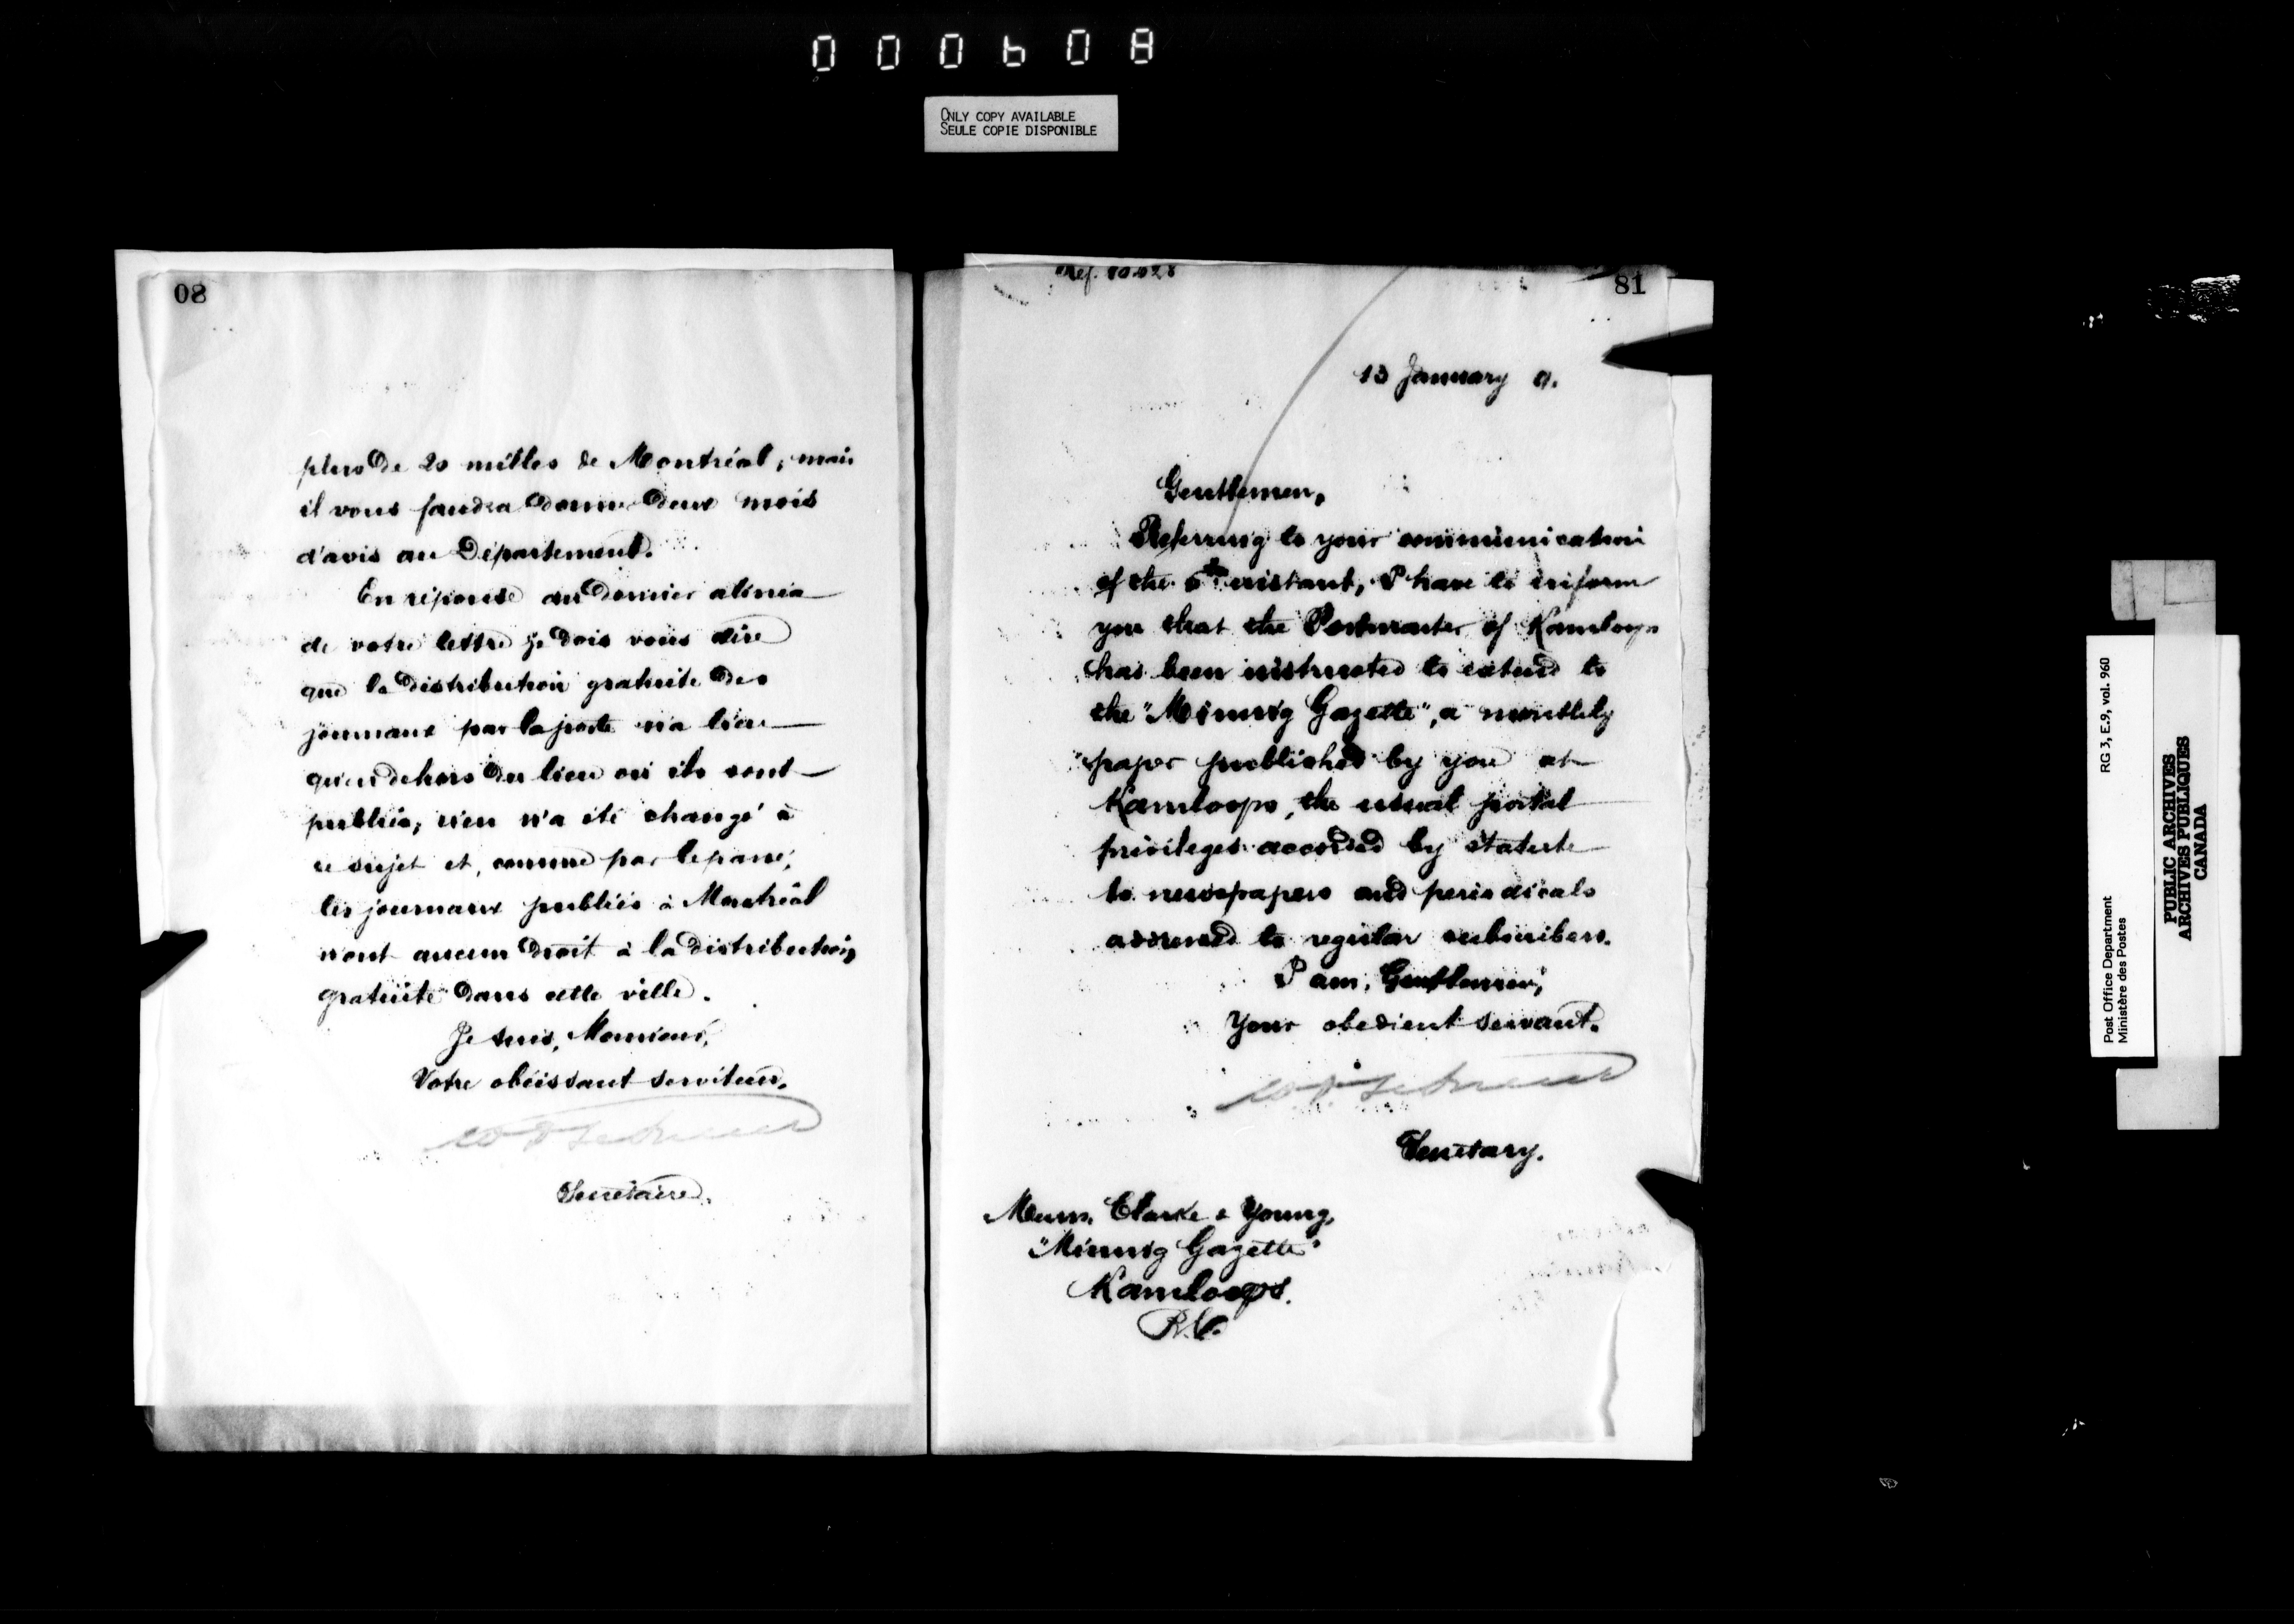 000608
ONLY COPY AVAILABLE
SEULE COPIE DISPONIBLE
08
plus de 20 milles de Montréal, mais
il vous faudra donner deux mois
d'avis au Département.
En réponse au dernier alinéa
de votre lettre je dois vous dire
que la distribution gratuite des
journaux par la poste n'a lieu
qu'en dehors du lieu où ils sont
publiés, rien n'a été changé à
ce sujet et, comme par le passé,
les journaux publiés à Montréal
n'ont aucun droit à la distribution
gratuite dans cette ville.
Je suis, Monsieur,
Votre obéissant serviteur.
Secrétaire.
Ref.
81
13 January
Gentlemen,
Referring to your communication
of the instant, I have to inform
you that the Postmaster of Kamloops
has been instructed to extend to
the "Mining Gazette", a monthly
paper published by you at
Kamloops, the usual postal
privileges accorded by statute
to newspapers and periodicals
addressed to regular subscribers.
I am, Gentlemen,
Your obedient servant.
Secretary.
Messrs. Clarke & Young,
"Mining Gazette"
Kamloops.
B.C.
Post Office Department
Ministère des Postes
RG 3, E.9, vol. 960
PUBLIC ARCHIVES
ARCHIVES PUBLIQUES
CANADA